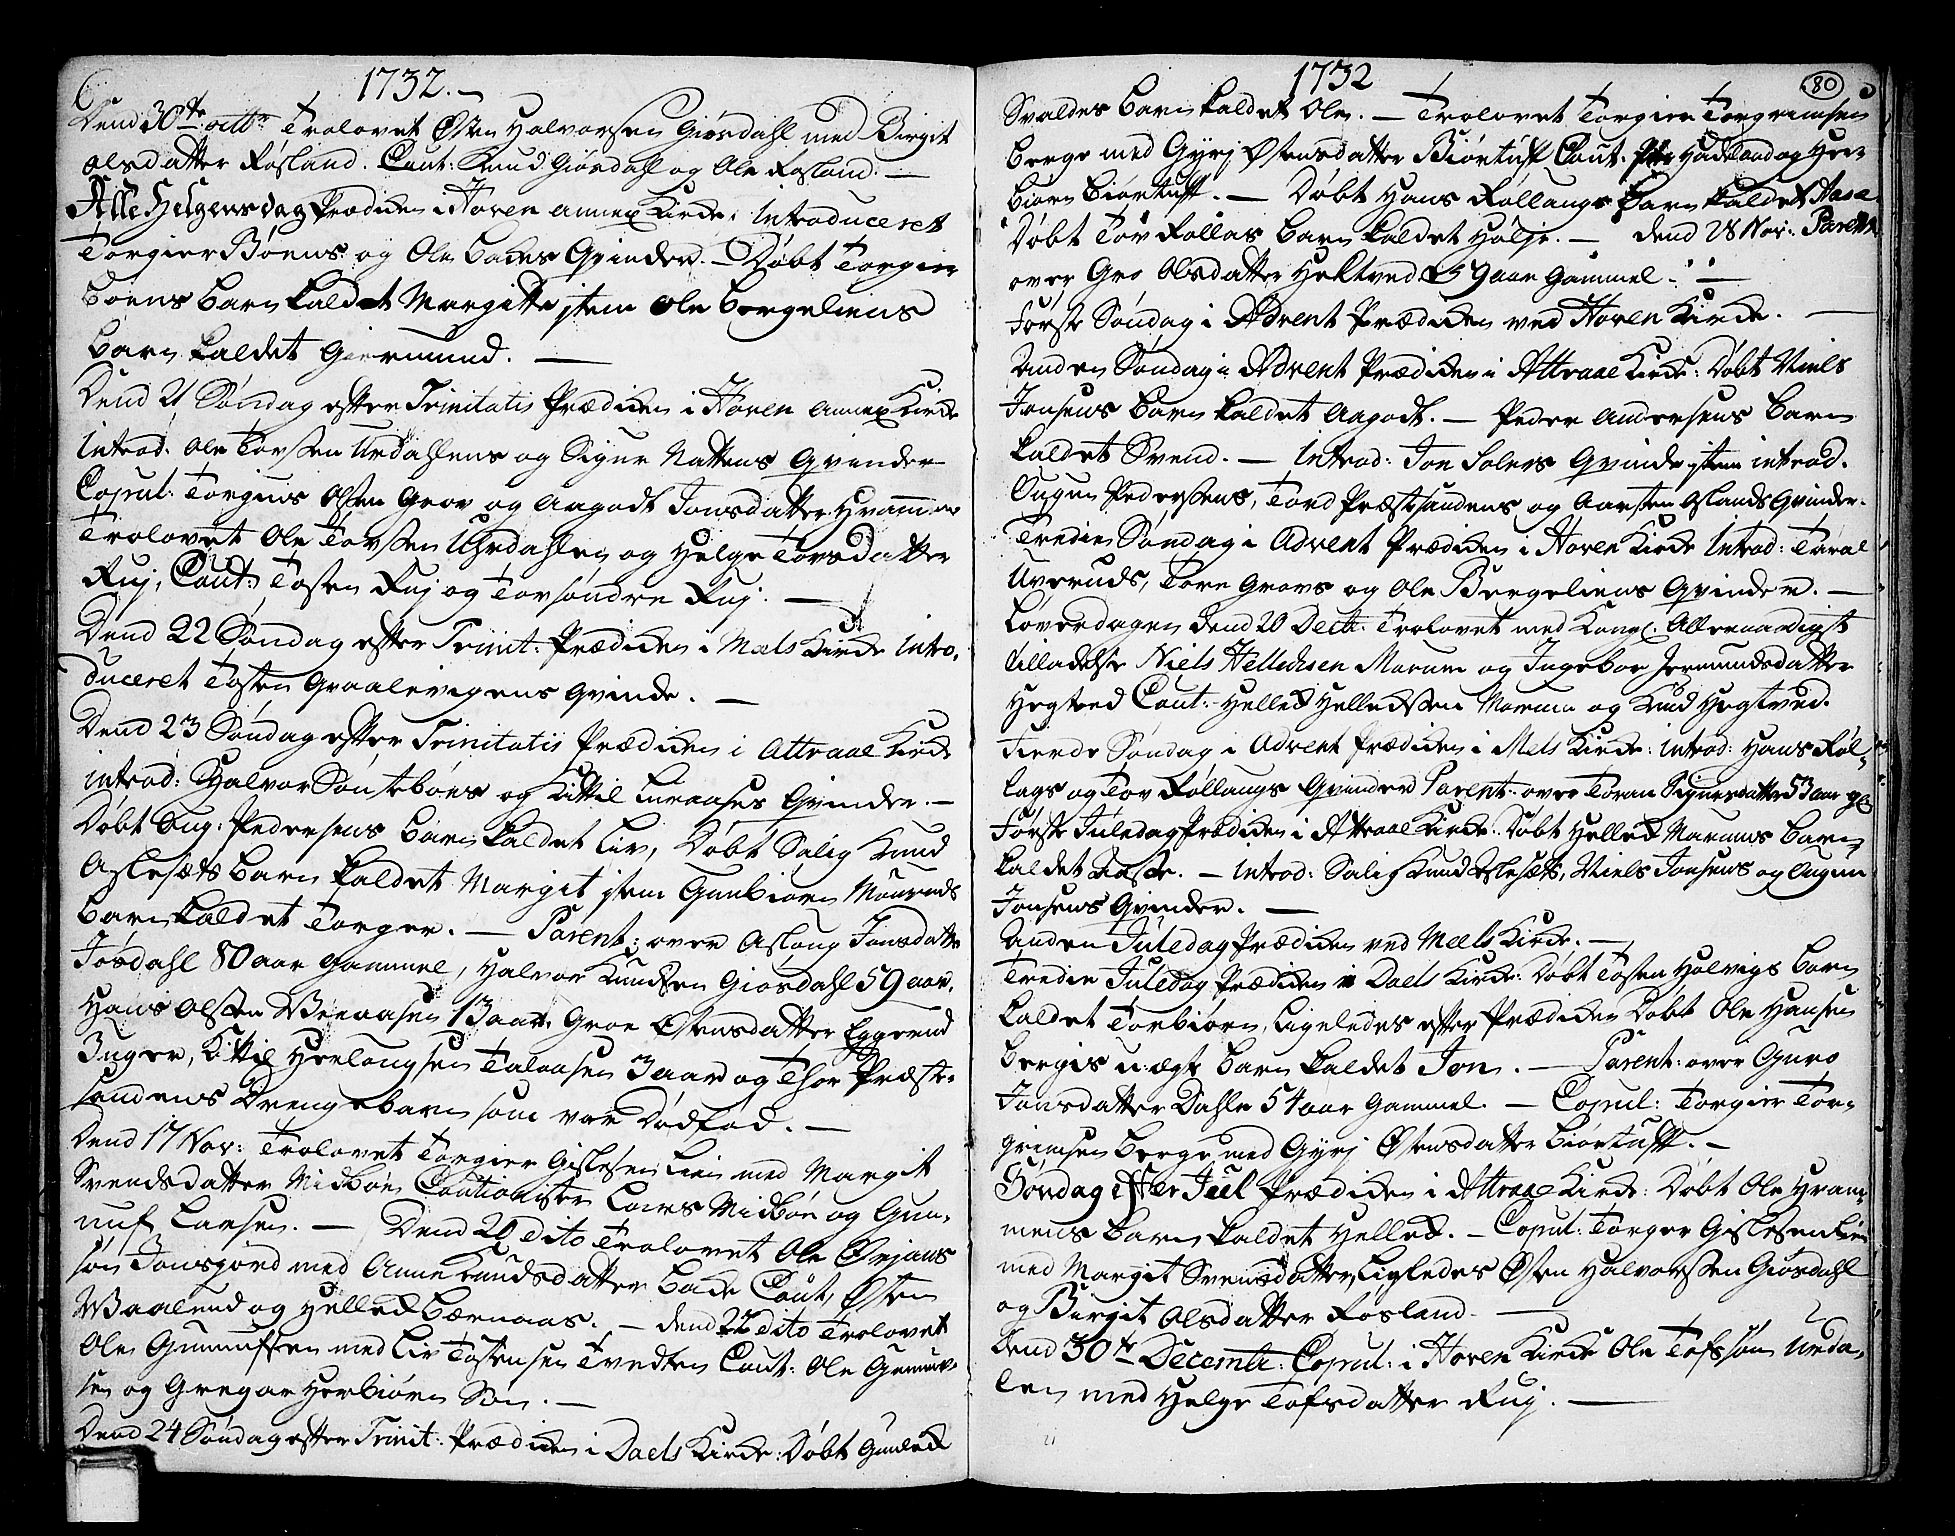 1732.
Dend 30te octbr Trolovet Østen Halvorsen Giøsdahl med Birgit
olsdatter Røsland. Caut: Knud Giøsdahl og Ole Røsland. —
Alle Helgens dag Prædiken i Hoven annex Kirche, Introduceret
Torgier Bøens og Ole Qvinder. — Døbt Torgier
Bøens Barn kaldet Margitte item Ole Bergeliens
Barn kaldet Giermund. —
Dend 21 Søndag efter Trinitatis Prædiken i Hoven annex Kirche
Introd. Ole Tovssen Urdahlens og Sigur Nattens Qvinder
Copul: Torgius Olssen Grov og Aagodt Jonsdatter
Trolovet Ole Tovssen Uhrdahlen og Helge Tovsdatter
Ruj, Caut: Tosten Ruj og Tov søndre Ruj. —
Dend 22 Søndag efter Trinit: Prædiken i Mæls Kirche Intro-
duceret Tosten Graalevigens Qvinde. —
Dend 23 Søndag efter Trinitatis Prædiken i Attraae Kirche
introd: Halvor Søntebøns og Kittil Luraases Qvinder. —
Døbt Pedersens Barn kaldet Liv, Døbt Salig Knud
Aslesæts Barn kaldet Margit item Gunbiørn
Barn kaldet Torger. — Parent: over Aslaug Jonsdatter
Jøsdahl 80 aar gammel, Halvor Knudsen Giøsdahl 59 aar,
Hans Olssen 13 aar, Groe Østensdatter Eggerud
3 uger, Kittil Herlougsen Talaasen 3 aar og Thor Præst-
sandens Drengebarn som var Dødfød. —
Dend 17 Nov: Trolovet Torgier Gislesen Lien med Margit
Svendsdatter Midbøen Cautionister Lars Midbøe og Gun-
nuf Larsen. — Dend 20 dito Trolovet Ole Ørjans
søn Jonsjord med Anne Knudsdatter Bade Caut, Østen
Waalerud og Helled Bernaas. — dend 22 dito Trolovet
Ole Gunnufsen med Liv Tostensen Tvedten Caut: Ole Gunnuv-
sen og Gregar Herbiørn Søn. —
Dend 24 Søndag efter Trinit: Prædiken i Daels Kirche: Døbt Gunled
1732
80
Svaldes Barn kaldet Ole. — Trolovet Torgier Torgrimsen
Berge med Gyrj Østensdatter Biørtuft Caut. og Her-
biørn Biørtuft. — Døbt Hans Rollaugs Barn kaldet Aase
Døbt Tov Rollas Barn kaldet Holje. — dend 28 Nov: Parent
over Gro Olsdatter Hektved 59 aar gammel. —
Første Søndag i Advent Prædiken ved Hoven Kirche. —
Anden Søndag i Advent Prædiken i Attraae Kirche: Døbt Niels
Jonsens Barn kaldet Aagodt. — Peder Andersens Barn
kaldet Svend. — Introd: Jon Solems Qvinde item introd.
Pederssens, Tord Præstsandens og Aarsten Oslands Qvinder.
Tredie Søndag i Advent Prædiken i Hoven Kirche Introd: Taral
Uveruds, Tore Grovs og Ole Bergeliens Qvinder. —
Løverdagen dend 20 Decbr. Trolovet med Kongl. Allernaadigst
tilladelse Niels Helledsen Marum og Ingebor Jermundsdatter
Hegtved Caut: Helled Helledssen Marum og Knud Hegtved.
Fierde Søndag i Advent Prædiken i Mels Kirche: introd: Hans Røl-
lags og Tov Rollaugs Qvinder Parent: over Toran Sigursdatter 53 aar gl
Første Juledag Prædiken i Attraae Kirche: Døbt Helled Marums Barn
kaldet Aase. — introd: Salig Knud Aslesæts, Niels Jonsens og
Jonsens Qvinder. —
Anden Juledag Prædiken ved Meels Kirche. —
Tredie Juledag Prædiken i Daels Kirche: Døbt Tosten Holvigs Barn
kaldet Torbiørn, Ligeledes efter Prædiken Døbt Ole Hansen
Bergis u-ægte Barn kaldet Jon. — Parent: over Guro
Jonsdatter Dahle 54 aar gammel. — Copul: Torgier Tor-
grimsen Berge med Gyrj Østensdatter Biørtuft. —
Søndag efter Juel Prædiken i Attraae Kirche: Døbt Ole Hram-
mens Barn kaldet Helled. — Copul: Torger Gislesen Lien
med Margit Svensdatter, Ligledes Østen Halvorssen Giøsdahl
og Birgit Olsdatter Røsland. —
Dend 30te Decembr: Copul: i Hoven Kirche Ole Tofssøn Urda-
len med Helge Tofsdatter Ruj. —